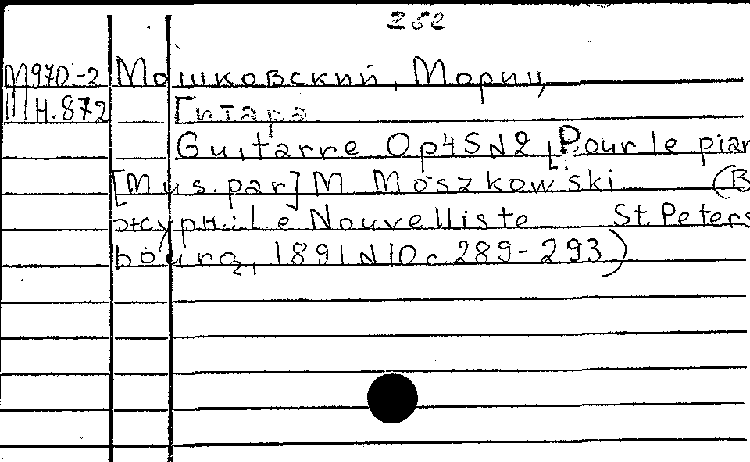 252
М970-2 Мошковский, Мориц
Ш4.872 Гитара.
Guitarre Op45 N2 [Pour le pian
[Mus. par] M Moszkowski (В
журн. Le Nouvelliste St. Peters
bourg, 1891 N10 с 289-293)